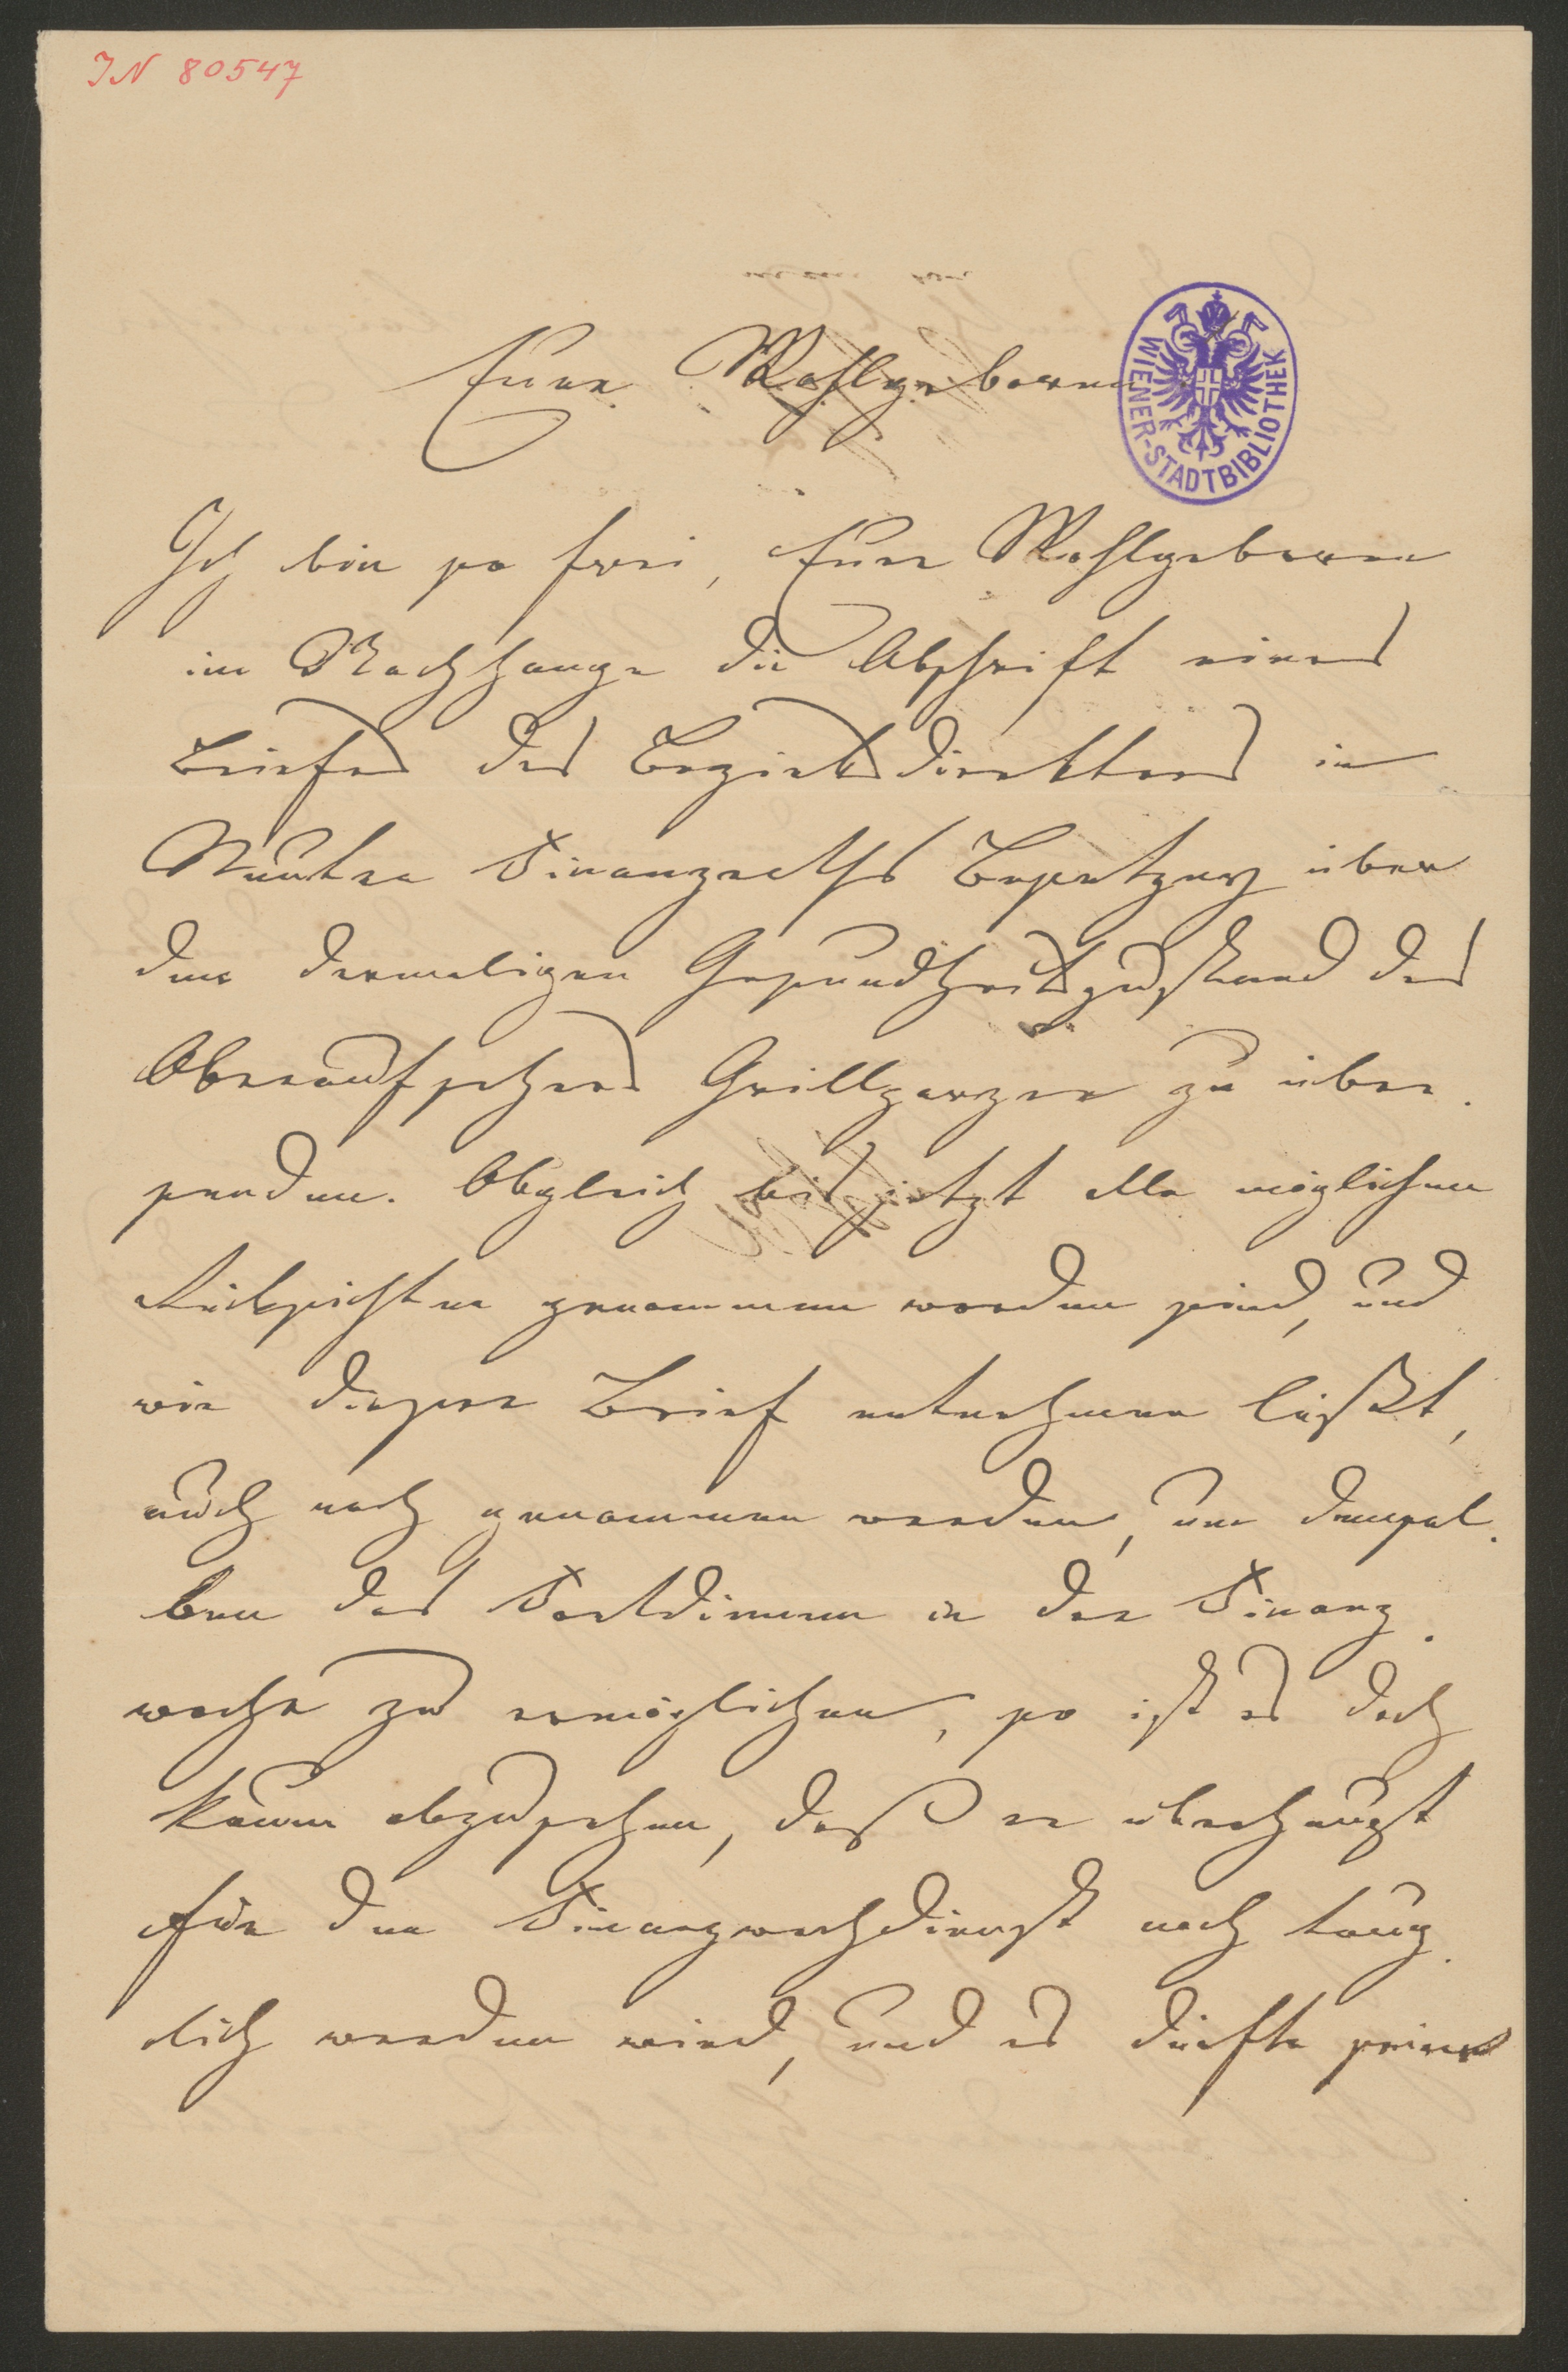 IN 80547
Euer Wohlgeboren
WIENER-STADTBIBLIOTHEK
Ich bin so frei, Euer Wohlgeboren
im Nachhange die Abschrift eines
Briefes des Bezirksdirektors in
Neutra Finanzraths über
den dermaligen Gesundheitszustand des
Oberaufsehers Grillparzer zu über-
senden. Obgleich bis jetzt alle möglichen
Rücksichten genommen worden sind, und
wie dieser Brief entnehmen läßt,
auch noch genommen werden, um demsel-
ben das Fortdienen in der Finanz-
wache zu ermöglichen, so ist es doch
kaum abzusehen, daß er überhaupt
für den Finanzwachdienst noch taug-
lich werden wird, und es dürfte seines